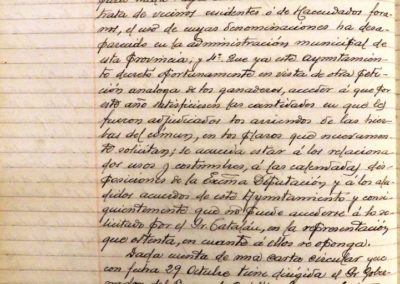 trata de vecinos residentes ó de Hacendados foras-
ros, el uso de cuyas denominaciones ha desa-
parecido en la administración municipal de
esta Provincia; y 4º Que ya este Ayuntamiento
decretó oportunamente en vista de otra peti-
ción analoga de los ganaderos, acceder á que por
este año satisficiesen las cantidades en que les
fueron adjudicados los arriendos de las hier-
bas del comun, en los plazos que nuevamen-
te solicitan; se acuerda estar á los relaciona-
dos usos y costumbres, á las calendadas dis-
posiciones de la Excma Diputación y á los alu-
didos acuerdos de este Ayuntamiento y consi-
guientemente que no puede accederse á lo so-
licitado por el Sr. Catalán, en la representación
que ostenta, en cuanto á ellos se oponga.
Dada cuenta de una carta circular que
con fecha 29 Octubre tiene dirigida el Sr. Gober-